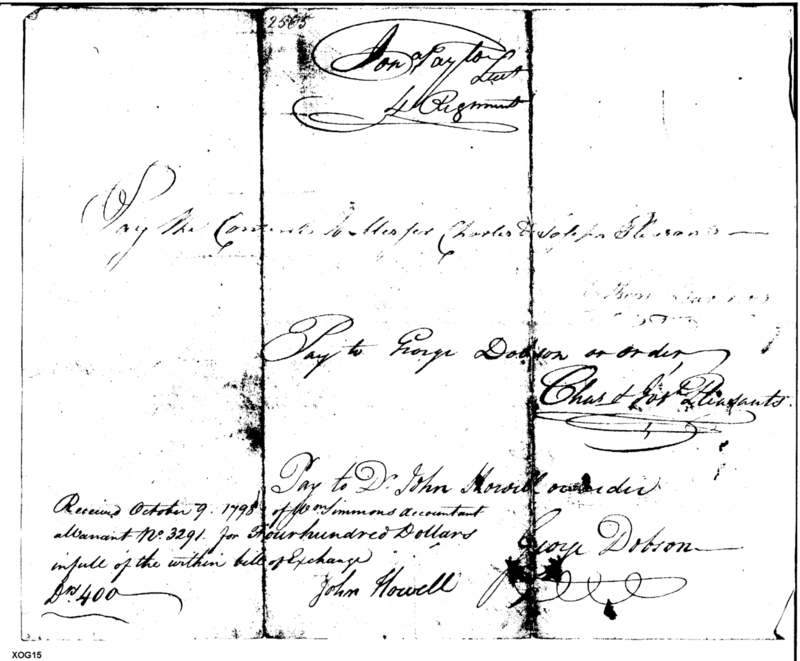 2565
Jona Taylor
Lieut
4 Regiment
Pay the Contents to Messrs Charles & Joseph Pleasants
Pay to George Dobson or order
Chas & Josh Pleasants.
Pay to Dr John Howell or order
George Dobson
Received October 9. 1798 of Wm Simmons accountant
a Warrant No. 3291. for Fourhundred Dollars
in full of the within bill of Exchange
Drs 400
John Howell
XOG15